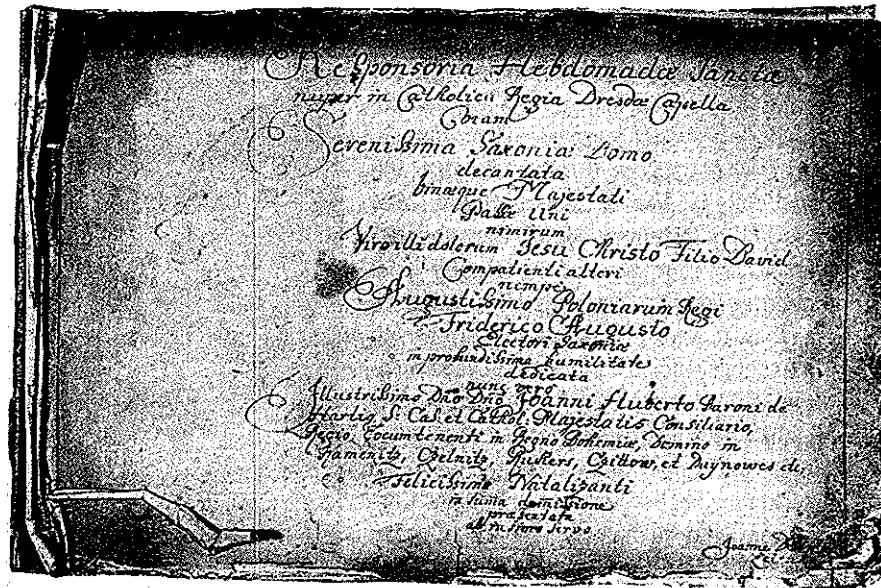 Responsoria Hebdomadæ Sanctæ
nuper in Catholica Regia Dresdæ Capella
Coram
Serenissima Saxoniæ Domo
decantata
binæque Majestati
Passæ Uni
nimirum
Viro illi dolorum Jesu Christo Filio David
Compatienti alteri
nempe
Augustissimo Poloniarum Regi
Friderico Augusto
Electori Saxoniæ
in profundissima humilitate
dedicata
nunc vero
Illustrissimo Dño Dño Joanni Huberto Baroni de
Hartig S. Cæs. et Cathol. Majestatis Consiliario,
Regio Locumtenenti in Regno Bohemiæ, Domino in
Kamenitz, et
Felicissime Natalizanti
in suma demissione
præsentata
ab infimo servo
Joanne